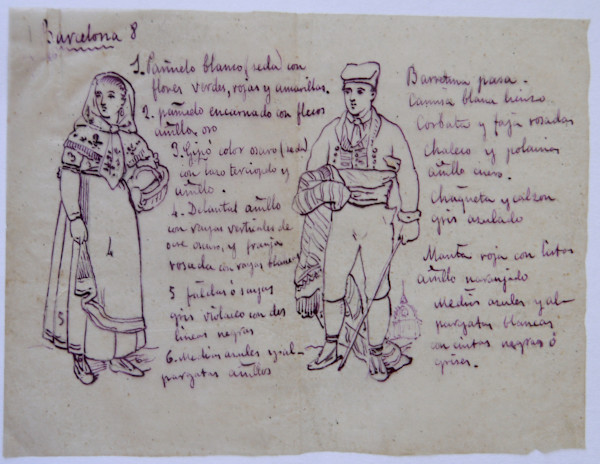 Barcelona 8
1. Pañuelo blanco (seda) con
flores verdes, rojas y amarillas.
2. pañuelo encarnado con flecos
añillo, oro
3. Gipó color oscuro (seda)
con lazo terciopelo y
añillo.
4. Delantal añillo
con rayas verticales de
ocre oscuro, y franja
rosada con rayas blancas
5 faldas ó sayas
gris violaceo con dos
lineas negras
6. Medias azules y al-
pargatas añillos
4
5
Barretina pasa.
Camisa blanca lienzo.
Corbata y faja rosadas
Chaleco y polainas
añillo cuero.
Chaqueta y calzon
gris azulado
Manta roja con listas
añillo naranjado
Medias azules y al-
pargatas blancas
con cintas negras ó
grises.